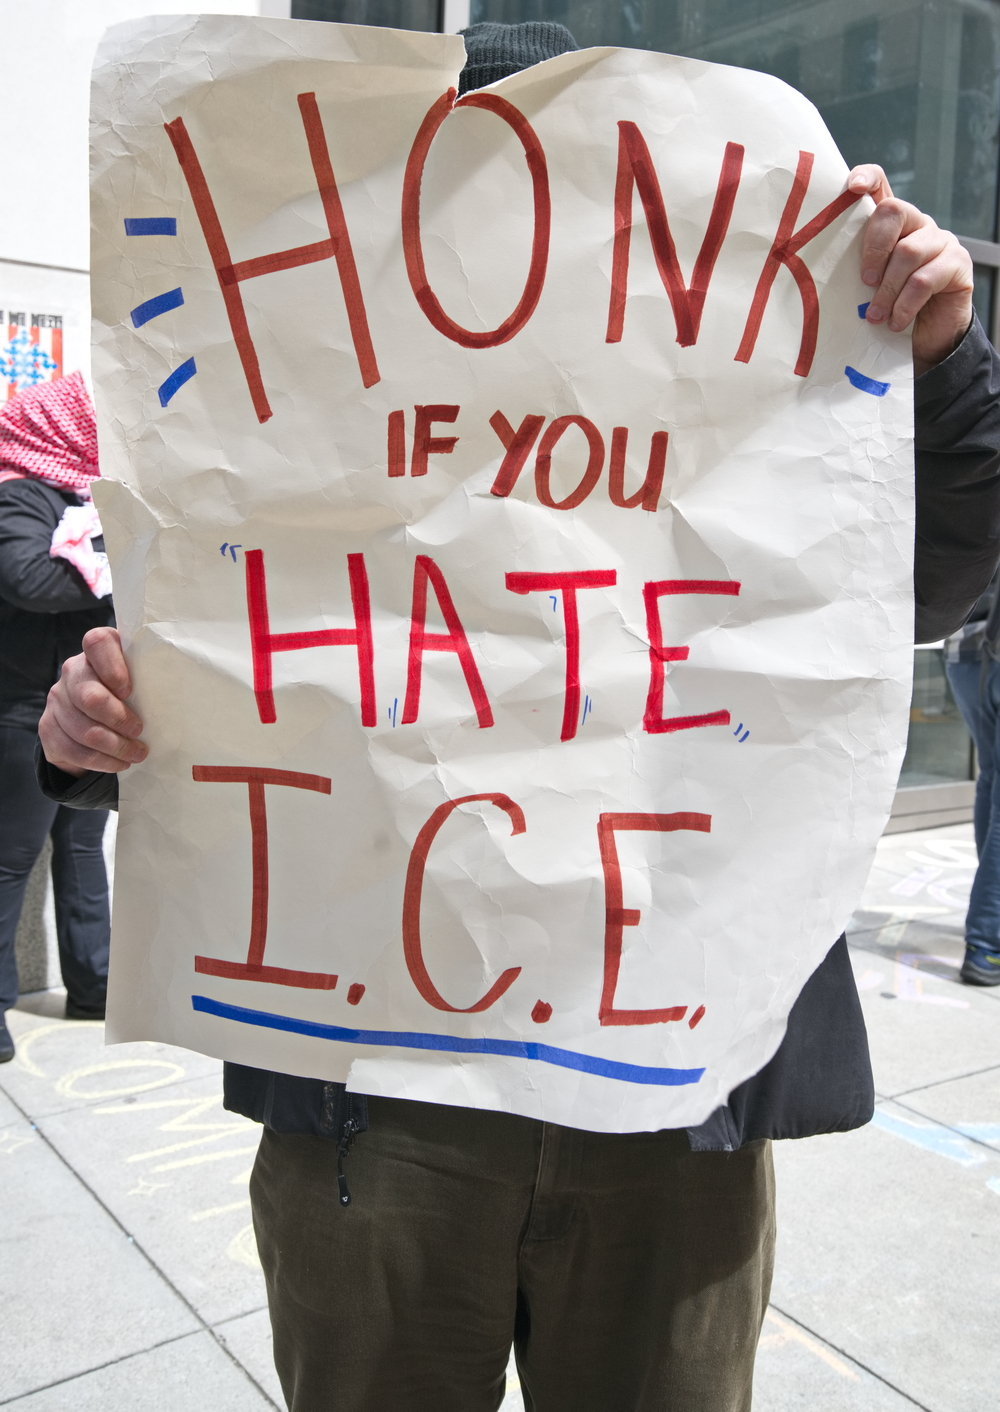 HONK
IF YOU
"HATE"
I.C.E.